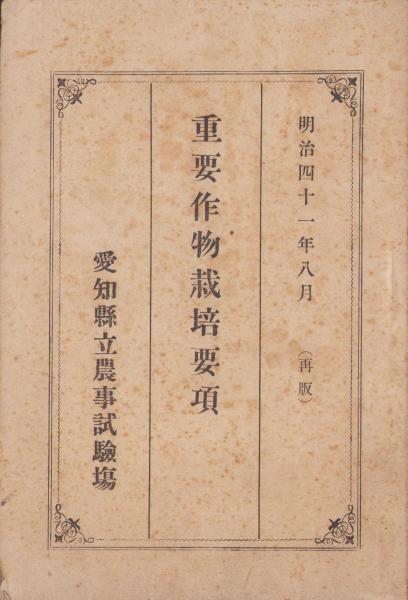 明治四十一年八月（再版）
重要作物栽培要項
愛知縣立農事試驗塲